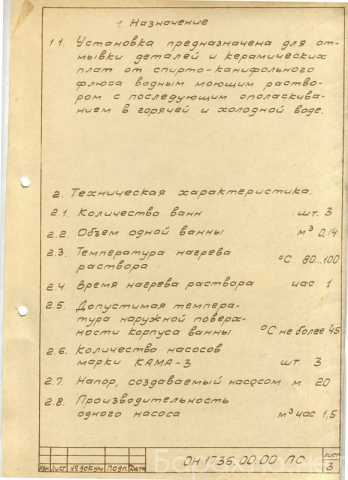 1. Назначение
1.1. Установка предназначена для от-
мывки деталей и керамических
плат от спирто-канифольного
флюса водным моющим раство-
ром с последующим ополаскива-
нием в горячей и холодной воде.
2. Техническая характеристика.
2.1. Количество ванн шт. 3
2.2. Объем одной ванны м³ 0,14
2.3. Температура нагрева
раствора °С 80...100
2.4. Время нагрева раствора час 1
2.5. Допустимая темпера-
тура наружной поверх-
ности корпуса ванны °С не более 45
2.6. Количество насосов
марки КАМА-3 шт 3
2.7. Напор, создаваемый насосом м 20
2.8. Производительность
одного насоса м³ час 1,5
ОН 1736.00.00 ПС
Лист
Изм Лист № докум Подп. Дата
3